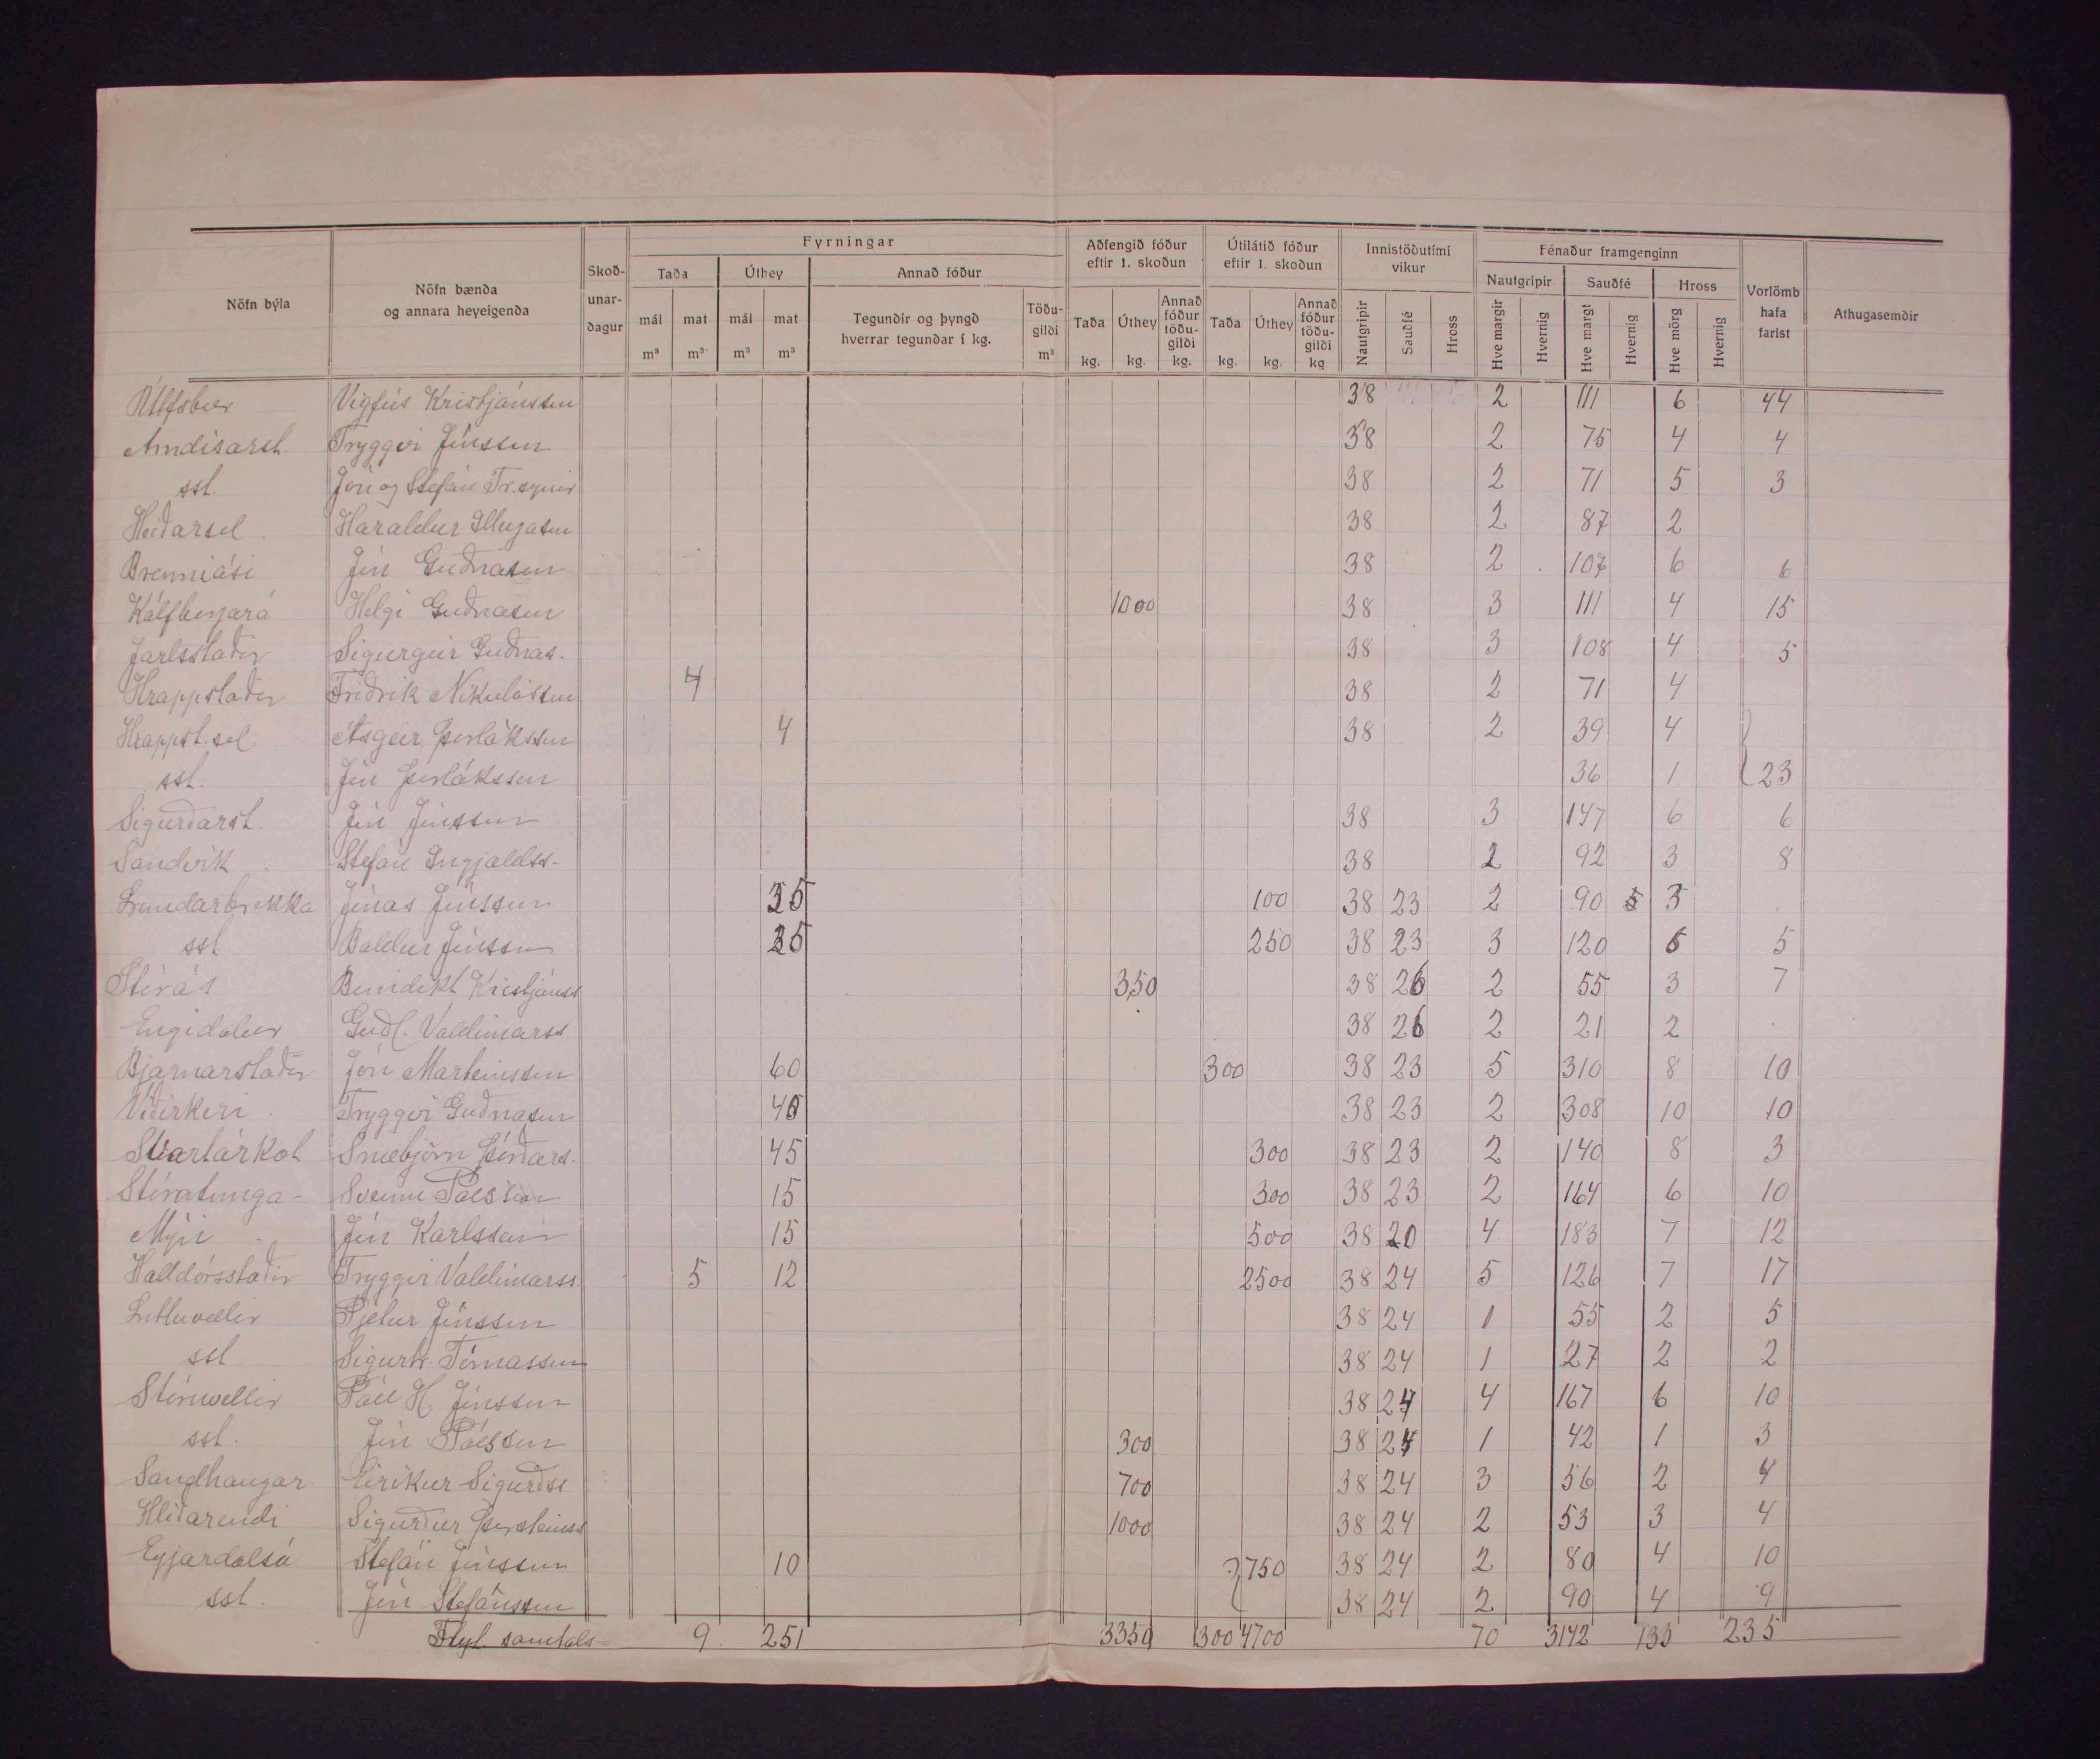 Fyrningar
Aðfengið fóður eftir 1. skoðun
Útilátið fóður eftir 1. skoðun
Innistöðutími vikur
Fénaður framgenginn
Nöfn býla
Nöfn bænda og annara heyeigenda
Skoð-unar-dagur
Taða
Úthey
Annað fóður
Nautgripir
Sauðfé
Hross
Vorlömb hafa farist
Athugasemdir
mál m³
mat m³
mál m³
mat m³
Tegundir og þyngd hverrar tegundar í kg.
Töðu-gildi m³
Taða kg.
Úthey kg.
Annað fóður töðu-gildi kg.
Taða kg.
Úthey kg.
Annað fóður töðu-gildi kg
Nautgripir
Sauðfé
Hross
Hve margir
Hvernig
Hve margt
Hvernig
Hve mörg
Hvernig
Úlfsbær Vigfús Kristjánsson 38 2 111 6 44
Arndísarst. Tryggvi Jónsson 38 2 75 4 4
sst. Jón og Stefán Tr.synir 38 2 71 5 3
Heiðarsel Haraldur Illugason 38 2 87 2
Brenniási Jón Guðnason 38 2 107 6 6
Kálfborgará Helgi Guðnason 1000 38 3 111 4 15
Jarlsstaðir Sigurgeir Guðnas. 38 3 108 4 5
Hrappstaðir Friðrik Nikulásson 4 38 2 71 4
Hrappst.sel Ásgeir Þorláksson 4 38 2 39 4
sst. Jón Þorláksson 36 1 23
Sigurðarst. Jón Jónsson 38 3 147 6 6
Sandvík Stefán Ingjaldss- 38 2 92 3 8
Lundarbrekka Jónas Jónsson 35 100 38 23 2 90 5 3
sst. Baldur Jónsson 25 250 38 23 3 120 6 5
Stórás Benidikt Kristjánss 350 38 26 2 55 3 7
Engidalur Guðl. Valdimarss 38 26 2 21 2
Bjarnarstaðir Jón Marteinsson 60 300 38 23 5 310 8 10
Víðirkeri Tryggvi Guðnason 40 38 23 2 308 10 10
Svartárkot Snæbjörn Þórðars. 45 300 38 23 2 140 8 3
Stóratunga - Sveinn Pálsson 15 300 38 23 2 164 6 10
Mýri Jón Karlsson 15 500 38 20 4 183 7 12
Halldórsstaðir Tryggvi Valdimarss. 5 12 2500 38 24 5 126 7 17
Litluvellir Pjetur Jónsson 38 24 1 55 2 5
sst. Sigurtr. Tómasson 38 24 1 27 2 2
Stóruvellir Páll H. Jónsson 38 24 4 167 6 10
sst. Jón Pálsson 300 38 24 1 42 1 3
Sandhaugar Eiríkur Sigurðss 700 38 24 3 56 2 4
Hlíðarendi Sigurður Þorsteinss 1000 38 24 2 53 3 4
Eyjardalsá Stefán Jónsson 10 750 38 24 2 80 4 10
sst. Jón Stefánsson 38 24 2 90 4 9
Flyt. samtals - 9. 251 3350 300 4700 70 3142 133 235